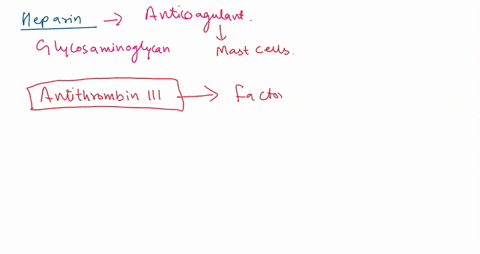 Heparin → Anticoagulant.
↓
Glycosaminoglycan Mast cells.
Antithrombin III → Factor